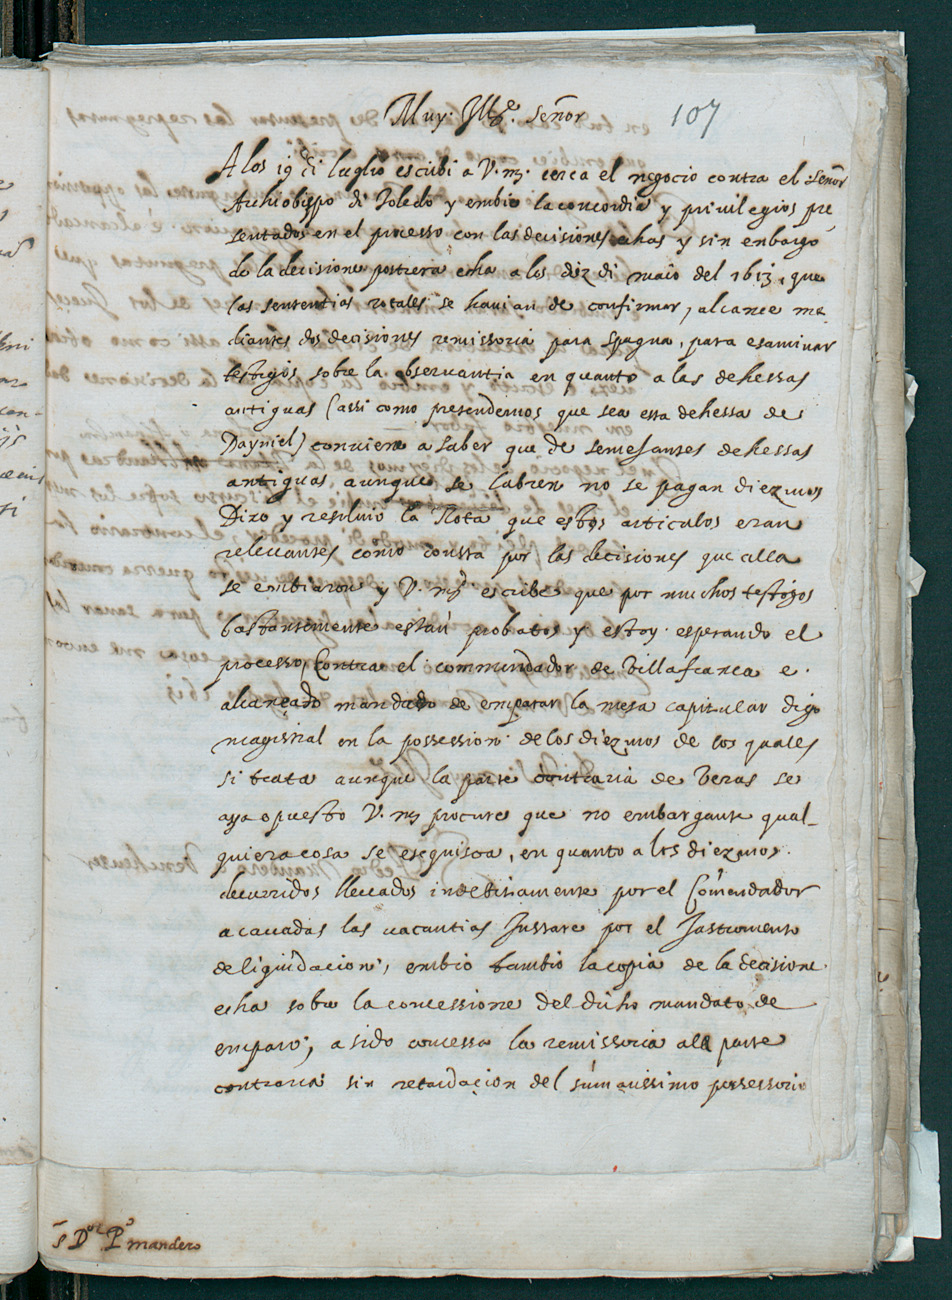 107
Muy Ille. Señor
A los 19 di luglio escribi a V. m. cerca el negocio contra el señor
Archobispo di Toledo y embio la concordia y privilegios pre
sentados en el processo con las decisiones echas y sin embargo
de la decisione postrera echa a los diez di maio del 1613, que
las sententias rotales se havian de confirmar, alcance me
diantes dos decisiones remissoria para spagna, para esaminar
testigos sobre la observantia en quanto a las dehessas
antiguas (assi como pretendemos que sea esta dehessa de
Dayniel) conviene a saber que de semesantes dehessas
antiguas, aunque se labren no se pagan diezmos
Dixo y resoluio la Rota que estos articulos eran
relevantes como consta por las decisiones que alla
se embiaron y V. md escribe que por muchos testigos
bastantemente están probatos y estoy esperando el
processo, Contra el commendador de Villafranca e
alcançado mandado de emparar la mesa capitular digo
magistral en la possession de los diezmos de los quales
si trata aunque la parte contraria de veras se
aya opuesto V. m procure que no embargante qual-
quiera cosa se esequisca, en quanto a los diezmos
decurridos llevados indebitamente por el Comendador
acavadas las vacantias Instare por el Instromento
de liquidacion, embio tambio la copia de la decisione
echa sobre la concessione del dicho mandato de
emparo, a sido concessa la remissoria alla parte
contraria sin retardacion del sumarissimo possessorio
s Dor Po mandero